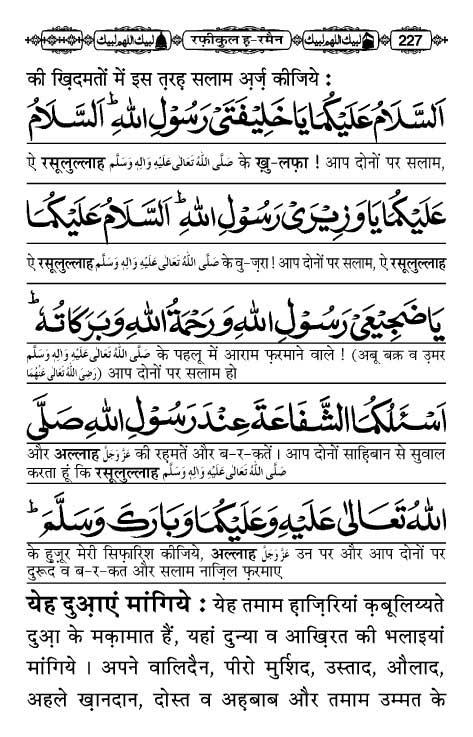 لبيك اللهم لبيك रफ़ीकुल ह-रमैन لبيك اللهم لبيك 227
की ख़िदमतों में इस त़रह़ सलाम अ़र्ज़ कीजिये :
اَلسَّلَامُ عَلَيْكُمَا يَا خَلِيْفَتَىْ رَسُوْلِ اللهِ ؕ اَلسَّلَامُ
ऐ रसूलुल्लाह صَلَّى اللهُ تَعَالٰى عَلَيْهِ وَاٰلِهٖ وَسَلَّم के ख़ु-लफ़ा ! आप दोनों पर सलाम,
عَلَيْكُمَا يَا وَزِيْرَىْ رَسُوْلِ اللهِ ؕ اَلسَّلَامُ عَلَيْكُمَا
ऐ रसूलुल्लाह صَلَّى اللهُ تَعَالٰى عَلَيْهِ وَاٰلِهٖ وَسَلَّم के वु-ज़रा ! आप दोनों पर सलाम, ऐ रसूलुल्लाह
يَا ضَجِيْعَىْ رَسُوْلِ اللهِ وَرَحْمَةُ اللهِ وَبَرَكَاتُهٗ ؕ
صَلَّى اللهُ تَعَالٰى عَلَيْهِ وَاٰلِهٖ وَسَلَّم के पहलू में आराम फ़रमाने वाले ! (अबू बक्र व उ़मर
رَضِىَ اللهُ تَعَالٰى عَنْهُمَا) आप दोनों पर सलाम हो
اَسْئَلُكُمَا الشَّفَاعَةَ عِنْدَ رَسُوْلِ اللهِ صَلَّى
और अल्लाह عَزَّوَجَلَّ की रह़मतें और ब-र-कतें । आप दोनों साह़िबान से सुवाल
करता हूं कि रसूलुल्लाह صَلَّى اللهُ تَعَالٰى عَلَيْهِ وَاٰلِهٖ وَسَلَّم
اللهُ تَعَالٰى عَلَيْهِ وَعَلَيْكُمَا وَبَارَكَ وَسَلَّمَ ؕ
के हु़ज़ूर मेरी सिफ़ारिश कीजिये, अल्लाह عَزَّوَجَلَّ उन पर और आप दोनों पर
दुरूद व ब-र-कत और सलाम नाज़िल फ़रमाए
येह दुआ़एं मांगिये : येह तमाम ह़ाज़िरियां क़बूलिय्यते
दुआ़ के मक़ामात हैं, यहां दुन्या व आख़िरत की भलाइयां
मांगिये । अपने वालिदैन, पीरो मुर्शिद, उस्ताद, औलाद,
अहले ख़ानदान, दोस्त व अह़बाब और तमाम उम्मत के